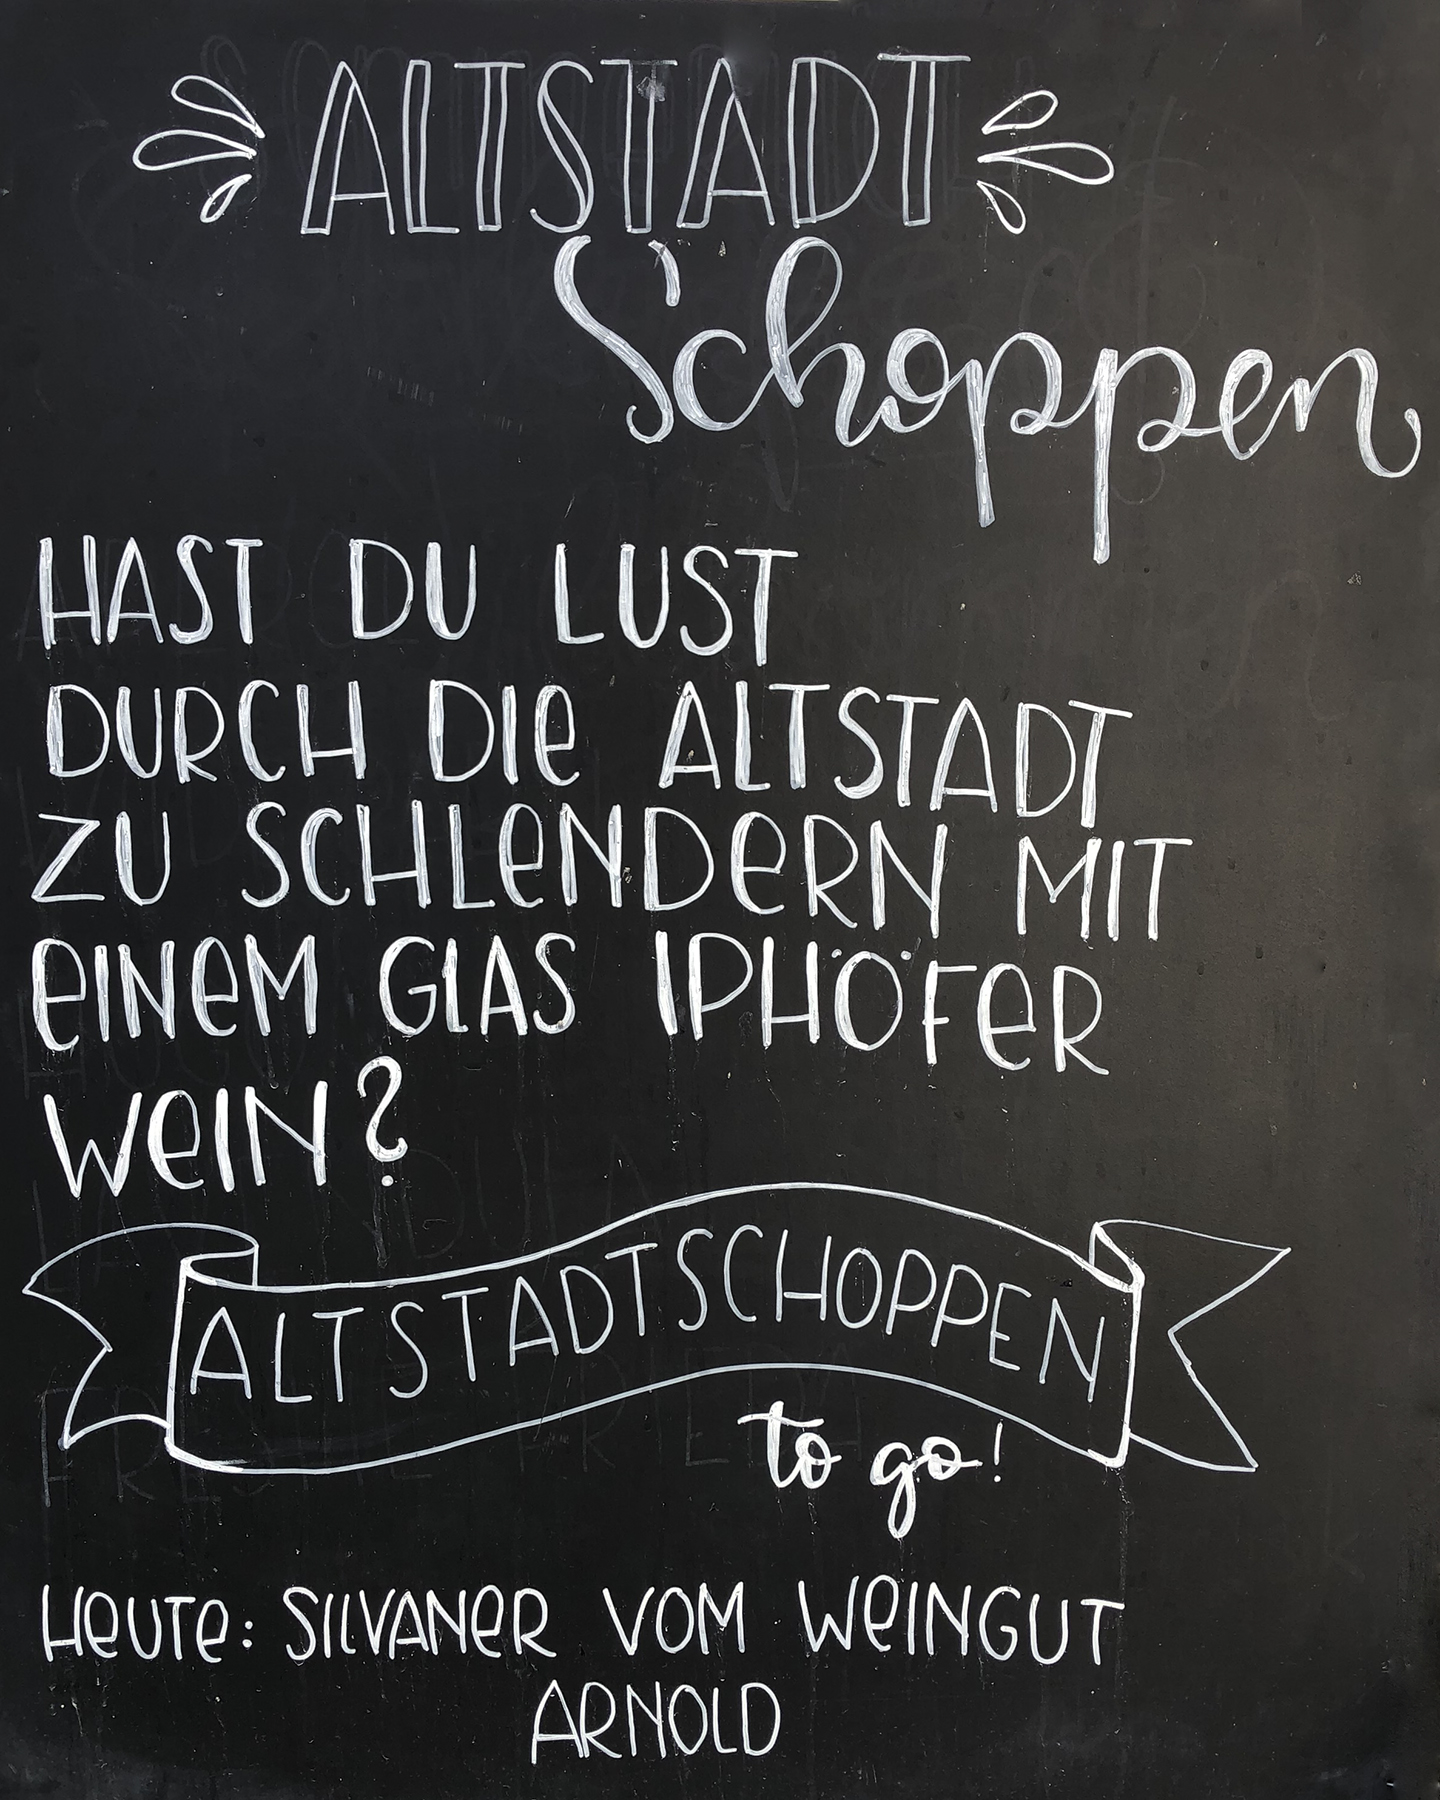 ALTSTADT
Schoppen
HAST DU LUST
DURCH DIe ALTSTADT
ZU SCHLeNDeRN MIT
eINeM GLAS IPHÖFeR
WeIN?
ALTSTADTSCHOPPEN
to go!
HeUTe: SILVANeR VOM WeINGUT
ARNOLD